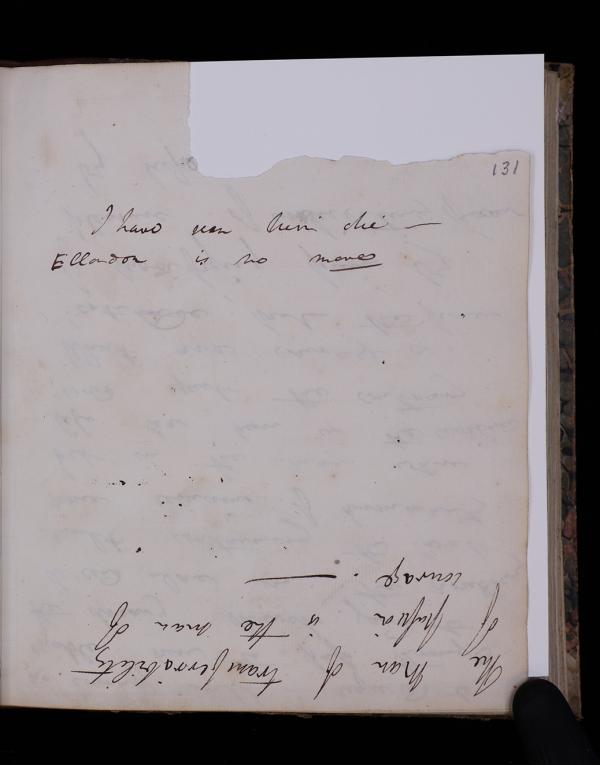 131
I have seen him die —
Ellandon is no more
The Man of transferrability
of is the man of
courage. —